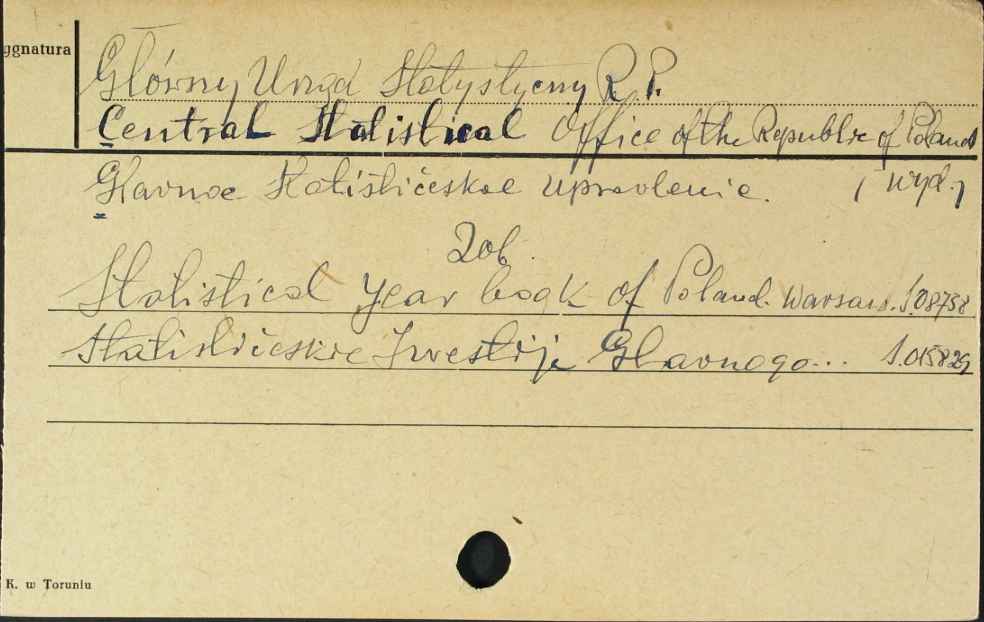 ygnatura
Główny Urząd Statystyczny R. P.
Central Statistical Office of the Republic of Poland
Glavnoe Statističeskoe Upravlenie. (wyd.)
Zob.
Statistical Year book of Poland. Warsaw. S.08738
Statističeskie Izvestija Glavnogo... S.015829
K. w Toruniu